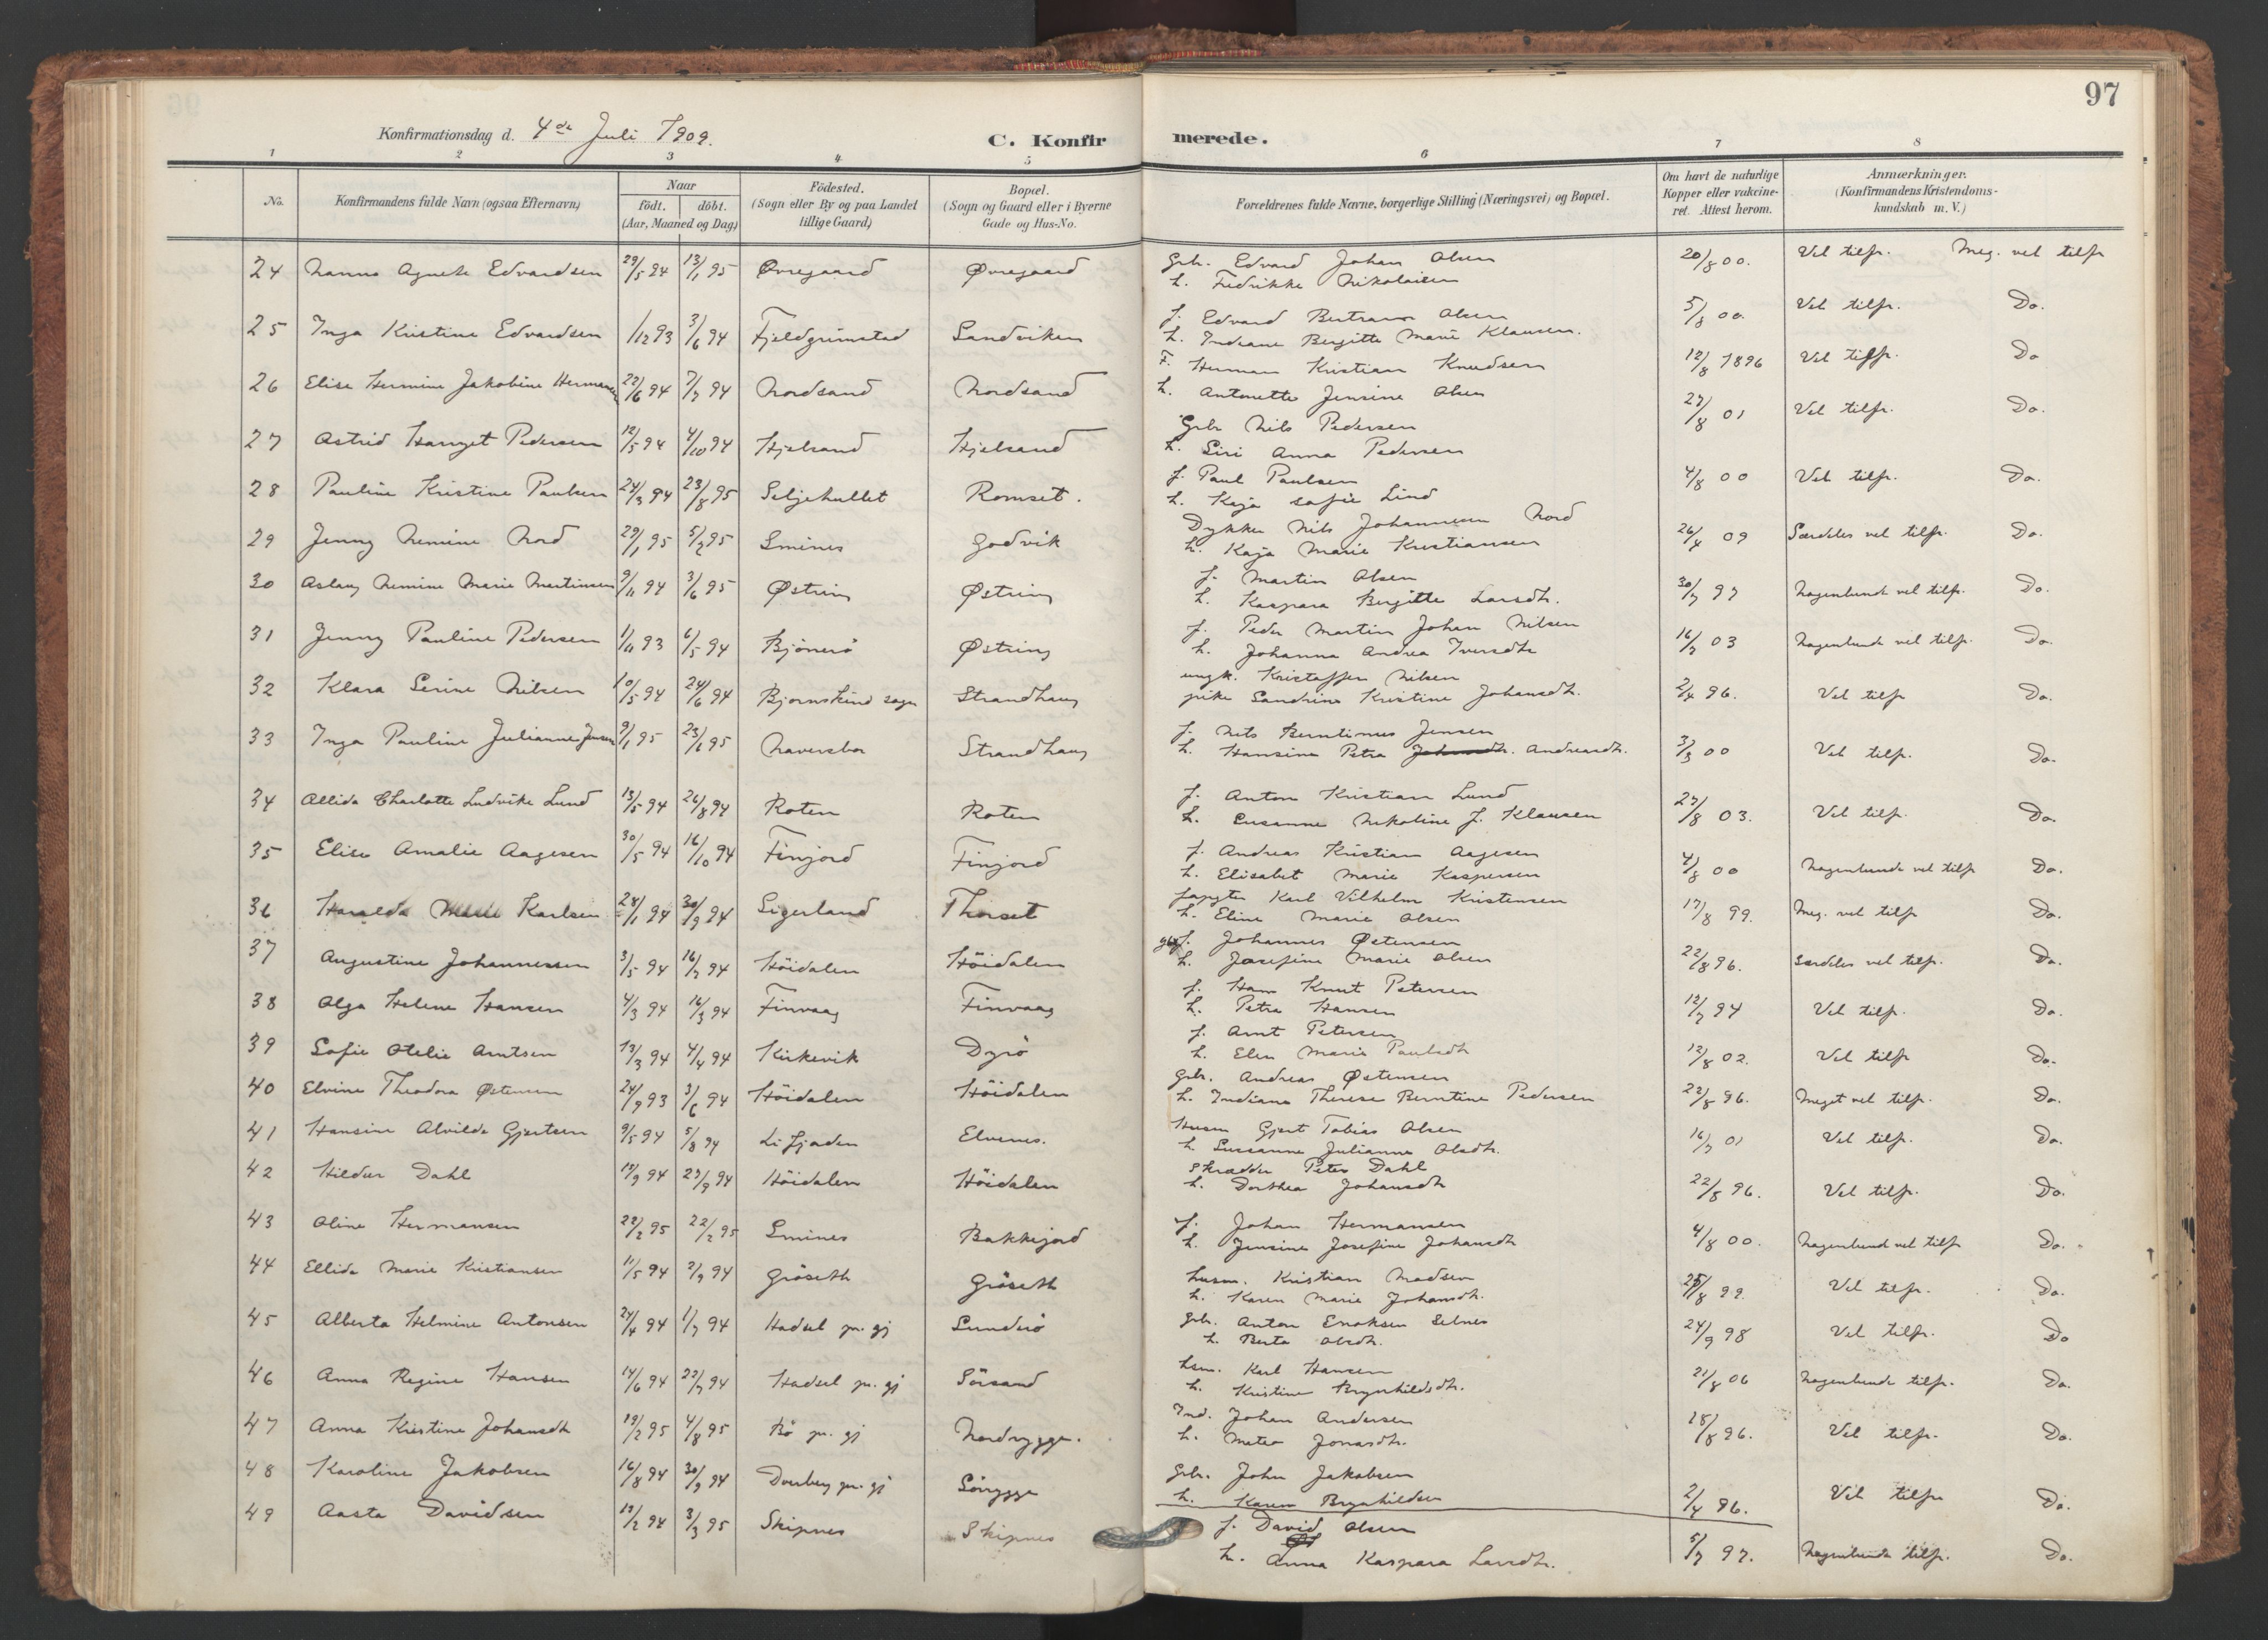 97
Konfirmationsdag d. 4de Juli 1909.
C. Konfirmerede.
1 2 3 4 5 6 7 8
No. Konfirmandens fulde Navn (ogsaa Efternavn) Naar født. døbt. (Aar, Maaned og Dag) Fødested. (Sogn eller By og paa Landet tillige Gaard) Bopæl. (Sogn og Gaard eller i Byerne Gade og Hus-No. Forældrenes fulde Navne, borgerlige Stilling (Næringsvei) og Bopæl. Om havt de naturlige Kopper eller vakcineret. Attest herom. Anmærkninger. (Konfirmandens Kristendomskundskab m. V.)
24 Nanna Agnete Edvardsen 29/5 94 13/1 95 Øvregaard Øvregaard Grb. Edvard Johan Olsen 20/8 00. Vel tilfr. Meg. vel tilfr
h. Fredrikke Nikolaisen
25 Inga Kristine Edvardsen 1/12 93 3/6 94 Fjeldgrimstad Sandviken f. Edvard Bertram Olsen 5/8 00. Vel tilfr. Do.
h. Indiane Bergitte Marie Klausen.
26 Elise Hermine Jakobine Hermansen 22/6 94 7/7 94 Nordsand Nordsand F. Herman Kristian Knudsen 12/8 1896 Vel tilfr. Do
h. Antonette Jensine Olsen
27 Astrid Hanget Pedersen 12/5 94 4/10 94 Hjelsand Hjelsand Grb Nils Pedersen 27/8 01 Vel tilfr. Do.
h. Siri Anna Pedersen
28 Pauline Kristine Paulsen 24/3 94 23/8 95 Seljehullet Romset. f. Paul Paulsen 4/8 00 Vel tilfr. Do.
h. Kaja Sofie Lind
29 Jenny Nemine Nord 29/1 95 5/2 95 Smines Godvik Dykker Nils Johannesen Nord 26/4 09 Særdeles vel tilfr. Do.
h. Kaja Marie Kristiansen
30 Aslaug Nemine Marie Martinsen 9/11 94 3/6 95 Østring Østring f. Martin Olsen 30/7 97 Nogenlunde vel tilfr. Do.
h. Kaspara Bergitte Larsdtr.
31 Jenny Pauline Pedersen 1/11 93 6/5 94 Bjönerö Østring f. Peder Martin Johan Nilsen 16/7 03 Nogenlunde vel tilfr. Do.
h. Johanna Andrea Iversdtr
32 Klara Serine Nilsen 10/5 94 24/6 94 Bjørnskind sogn Strandhaug ungk. Kristoffer Nilsen 2/4 96. Vel tilfr Do.
pike Sandrine Kristine Johansdtr.
33 Inga Pauline Julianne Jensen 9/1 95 23/6 95 Naversbor Strandhaug f. Nils Berntinus Jensen 3/3 00 Vel tilfr. Do.
h. Hansine Petra Johansdtr. Andreasdtr.
34 Ellida Charlotte Ludvike Lund 13/5 94 26/8 94 Roten Roten f. Anton Kristian Lund 27/8 03. Vel tilfr. Do.
h. Susanne Nikoline J. Klausen
35 Elise Amalie Aagesen 30/5 94 16/10 94 Finjord Finjord f. Andreas Kristian Aagesen 4/8 00 Nogenlunde vel tilfr Do.
h. Elisabet Marie Kaspersen
36 Haralda Karlsen 28/1 94 30/9 94 Sigerland Thorset Jægter Karl Vilhelm Kristensen 17/8 99. Meg. vel tilfr Do.
h. Eline Marie Olsen
37 Augustine Johannessen 3/5 94 16/7 94 Höidalen Höidalen f. Johannes Østensen 22/8 96. Særdeles vel tilfr. Do.
h. Josefine Marie Olsen
38 Olga Helene Hansen 4/3 94 16/3 94 Finvaag Finvaag f. Hans Knut Petersen 12/7 94 Vel tilfr. Do.
h. Petra Hansen
39 Sofie Otelie Arntsen 13/3 94 4/4 94 Kirkevik Dyrö f. Arnt Petersen 12/8 02. Vel tilfr Do.
h. Elen Marie Paulsdtr
40 Elvine Theodora Østensen 24/9 93 3/6 94 Höidalen Höidalen Grb. Andreas Østensen 22/8 96. Meget vel tilfr. Do.
h. Indiana Therese Berntine Pedersen
41 Hansine Alvilde Gjertsen 9/5 94 5/8 94 Lifjorden Elvenes. Husm Gjert Tobias Olsen 16/7 01 Vel tilfr. Do.
h. Sussanne Julianne Olsdtr.
42 Hildur Dahl 19/9 94 23/9 94 Höidalen Höidalen Skrædder Peter Dahl 22/8 96. Vel tilfr. Do.
h. Dorthea Johansdtr
43 Oline Hermansen 22/2 95 22/2 95 Smines Bakkejord f. Johan Hermansen 4/8 00. Nogenlund vel tilfr Do.
h. Jensine Josefine Johansdtr
44 Ellida Marie Kristiansen 11/5 94 2/9 94 Gröseth Gröseth husm. Kristian Madsen 25/8 99. Vel tilfr. Do.
h. Karen Marie Johansdtr.
45 Alberta Helmine Antonsen 24/4 94 1/7 94 Hadsel pr. gj Sunderö grb. Anton Enoksen Selnes 24/9 98 Vel tilfr. Do
h. Berta Olsdtr.
46 Anna Regine Hansen 14/6 94 22/7 94 Hadsel pr. gj Sörsand hsm. Karl Hansen 21/8 06 Nogenlunde tilfr. Do.
h. Kristine Brynhildsdtr.
47 Anna Kristine Johansdtr 19/2 95 4/8 95 Bö pr. gj Nordrygge. Ind. Johan Andersen 18/8 96. Vel tilfr. Do.
h. Metea Jonasdtr.
48 Karoline Jakobsen 16/8 94 30/9 94 Dverberg pr. gj Sörrygge Grb. John Jakobsen 2/4 96. Vel tilfr Do.
h. Karen Brynhildsen
49 Aasta Davidsen 19/2 94 3/3 95 Skipnes Skipnes f. David Olsen 5/7 97. Nogenlunde tilfr. Do.
h. Anna Kaspara Larsdtr.